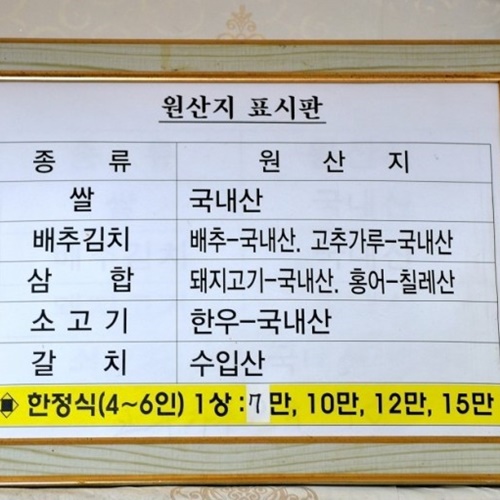 원산지 표시판
종 류 원 산 지
쌀 국내산
배추김치 배추-국내산, 고추가루-국내산
삼 합 돼지고기-국내산, 홍어-칠레산
소 고 기 한우-국내산
갈 치 수입산
▣ 한정식(4~6인) 1상 : 7만, 10만, 12만, 15만